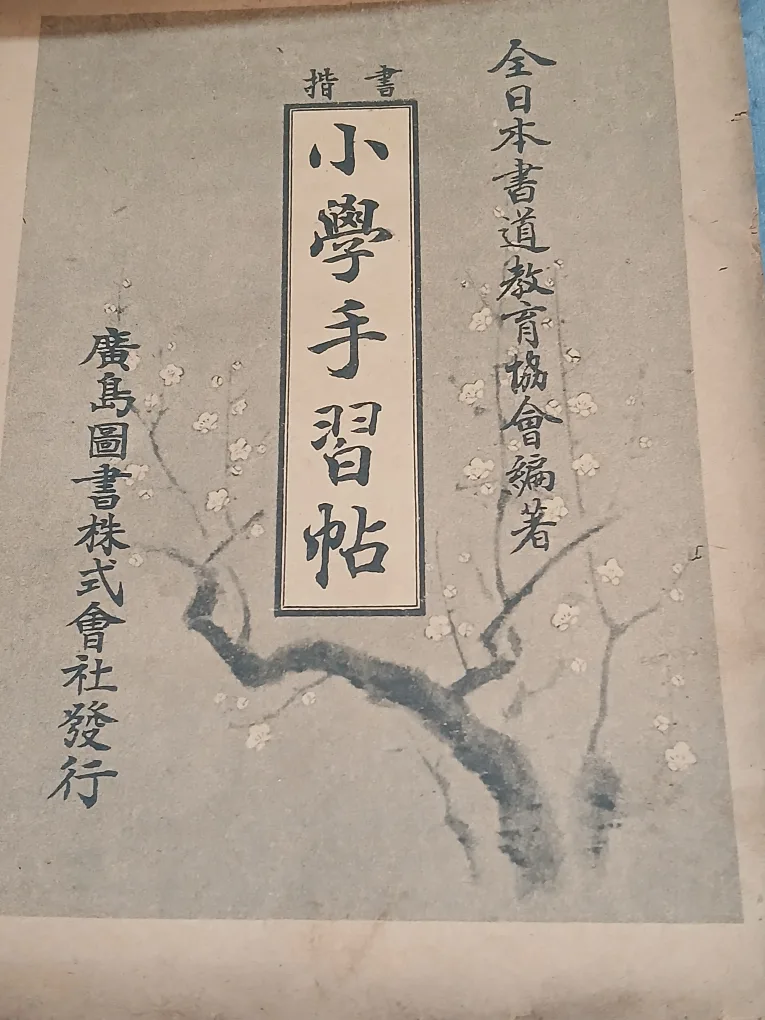 全日本書道教育協會編著
楷書
小學手習帖
廣島圖書株式會社發行